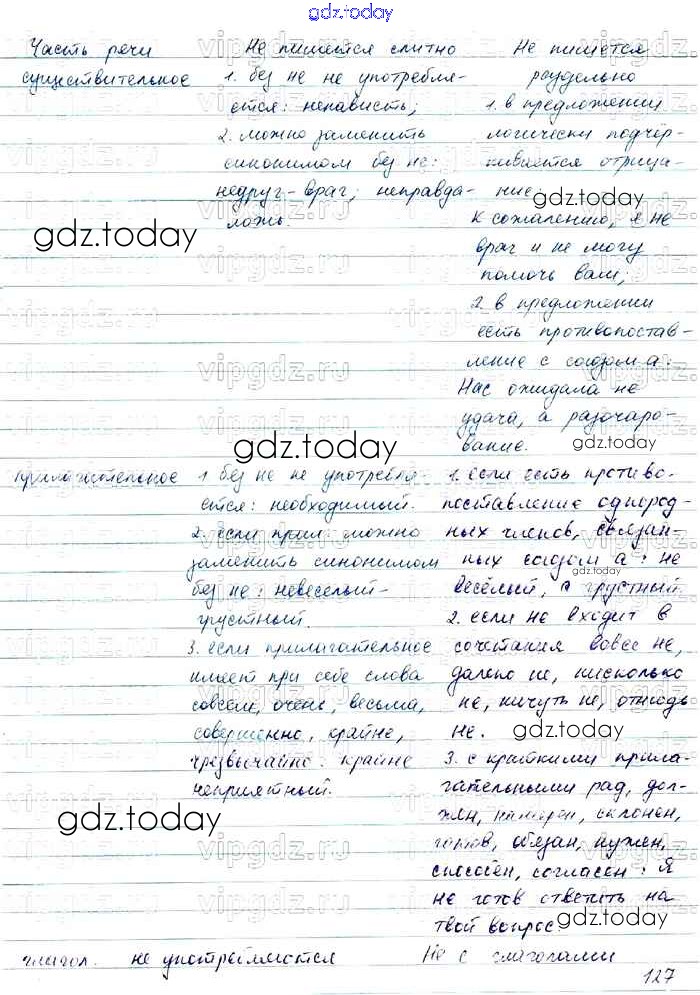 gdz.today
Часть речи Не пишется слитно Не пишется
существительное 1. без не не употребля- раздельно
ется: ненависть; 1. в предложении
2. можно заменить логически подчёр-
синонимом без не: кивается отрица-
недруг - враг; неправда - ние.
ложь. к сожалению, я не
gdz.today
gdz.today
врач и не могу
помочь вам;
2. в предложении
есть противопостав-
ление с союзом а.
Нас ожидала не
удача, а разочаро-
вание.
gdz.today
gdz.today
прилагательное 1 без не не употребля- 1. если есть противо-
ется: необходимый. поставление однород-
2. если прил. можно ных членов, связан-
заменить синонимом ных союзом а: не
gdz.today
без не: невеселый - весёлый, а грустный
грустный. 2. если не входит в
3. если прилагательное сочетания вовсе не,
имеет при себе слова далеко не, нисколько
совсем, очень, весьма, не, ничуть не, отнюдь
совершенно, крайне, не.
gdz.today
чрезвычайно: крайне 3. с краткими прила-
неприятный. гательными рад, дол-
gdz.today
жен, намерен, склонен,
готов, обязан, нужен,
способен, согласен: Я
не готов ответить на
твой вопрос.
gdz.today
глагол. не употребляются Не с глаголами
127
vipgdz.ru